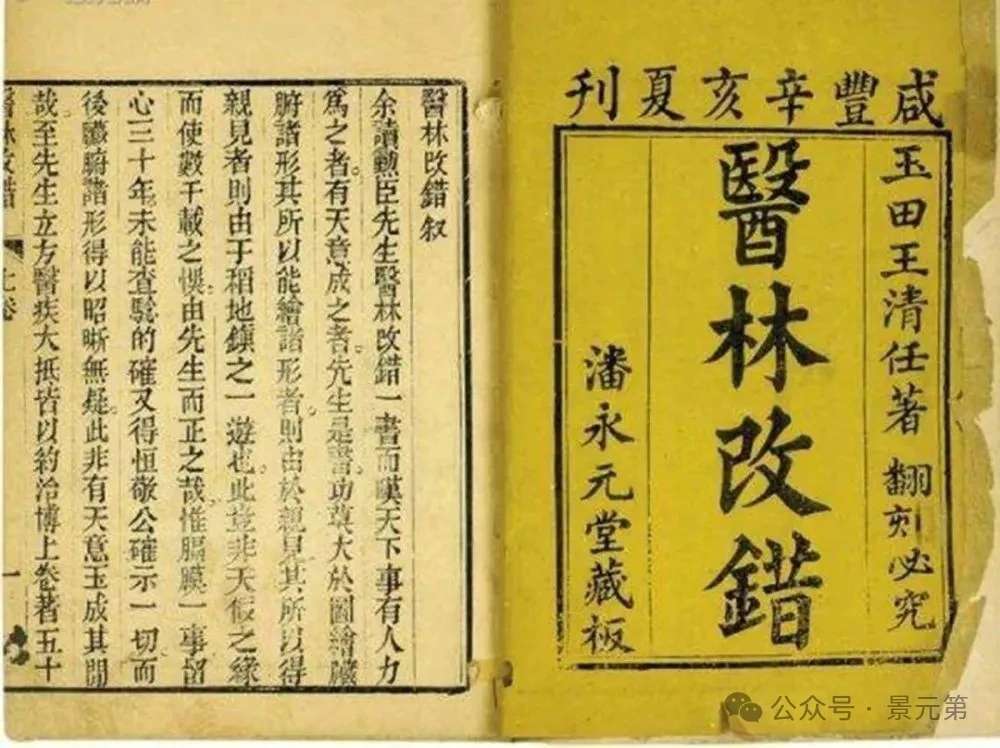 咸豐辛亥夏刊
玉田王清任著 翻刻必究
醫林改錯
潘永元堂藏板
醫林改錯叙
余讀勲臣先生醫林改錯一書而嘆天下事有人力
爲之者有天意成之者先生是書功莫大於圖繪臟
腑諸形其所以能繪諸形者則由於親見其所以得
親見者則由于稻地鎮之一遊也。此豈非天假之緣
而使數千載之悞由先生而正之哉。惟膈膜一事留
心三十年。未能查驗的確又得恒敬公確示一切而
後臟腑諸形得以昭晰無疑。此非有天意玉成其間
哉至先生立方醫疾大抵皆以約治博上卷著五十
醫林改錯
上卷
一
公众号·景元第